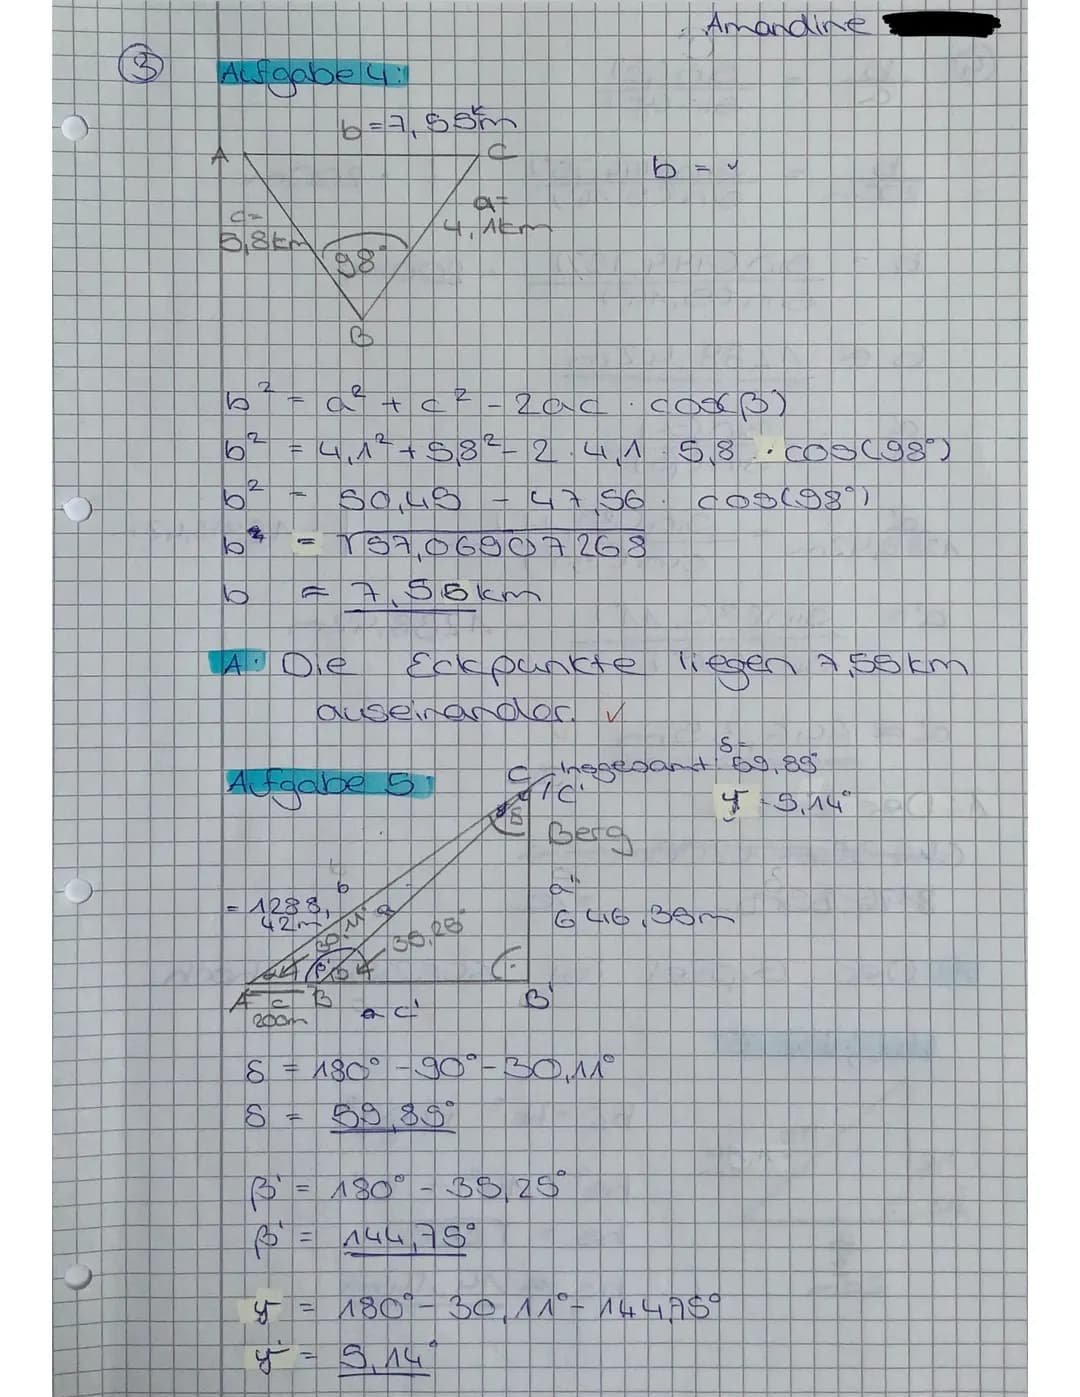 Amandine
3
Aufgabe 4:
b = 7,55km
A
C
b =
c=
5,8km
a=
4,1km
98°
B
b² = a² + c² - 2ac · cos(β)
b² = 4,1² + 5,8² - 2 · 4,1 · 5,8 · cos(98°)
b² = 50,45 - 47,56 · cos(98°)
b = √57,06907268
b = 7,55km
A: Die Eckpunkte liegen 7,55km
auseinander. ✓
Aufgabe 5:
C
insgesamt:
δ=
59,89°
C'
γ = 5,14°
δ
Berg
b
= 1288,
42m
a
a'
646,39m
30,11°
35,25°
α
β'
β
A
c
200m
B
c'
B'
δ = 180° - 90° - 30,11°
δ = 59,89°
β' = 180° - 35,25°
β' = 144,75°
γ = 180° - 30,11° - 144,75°
γ = 5,14°